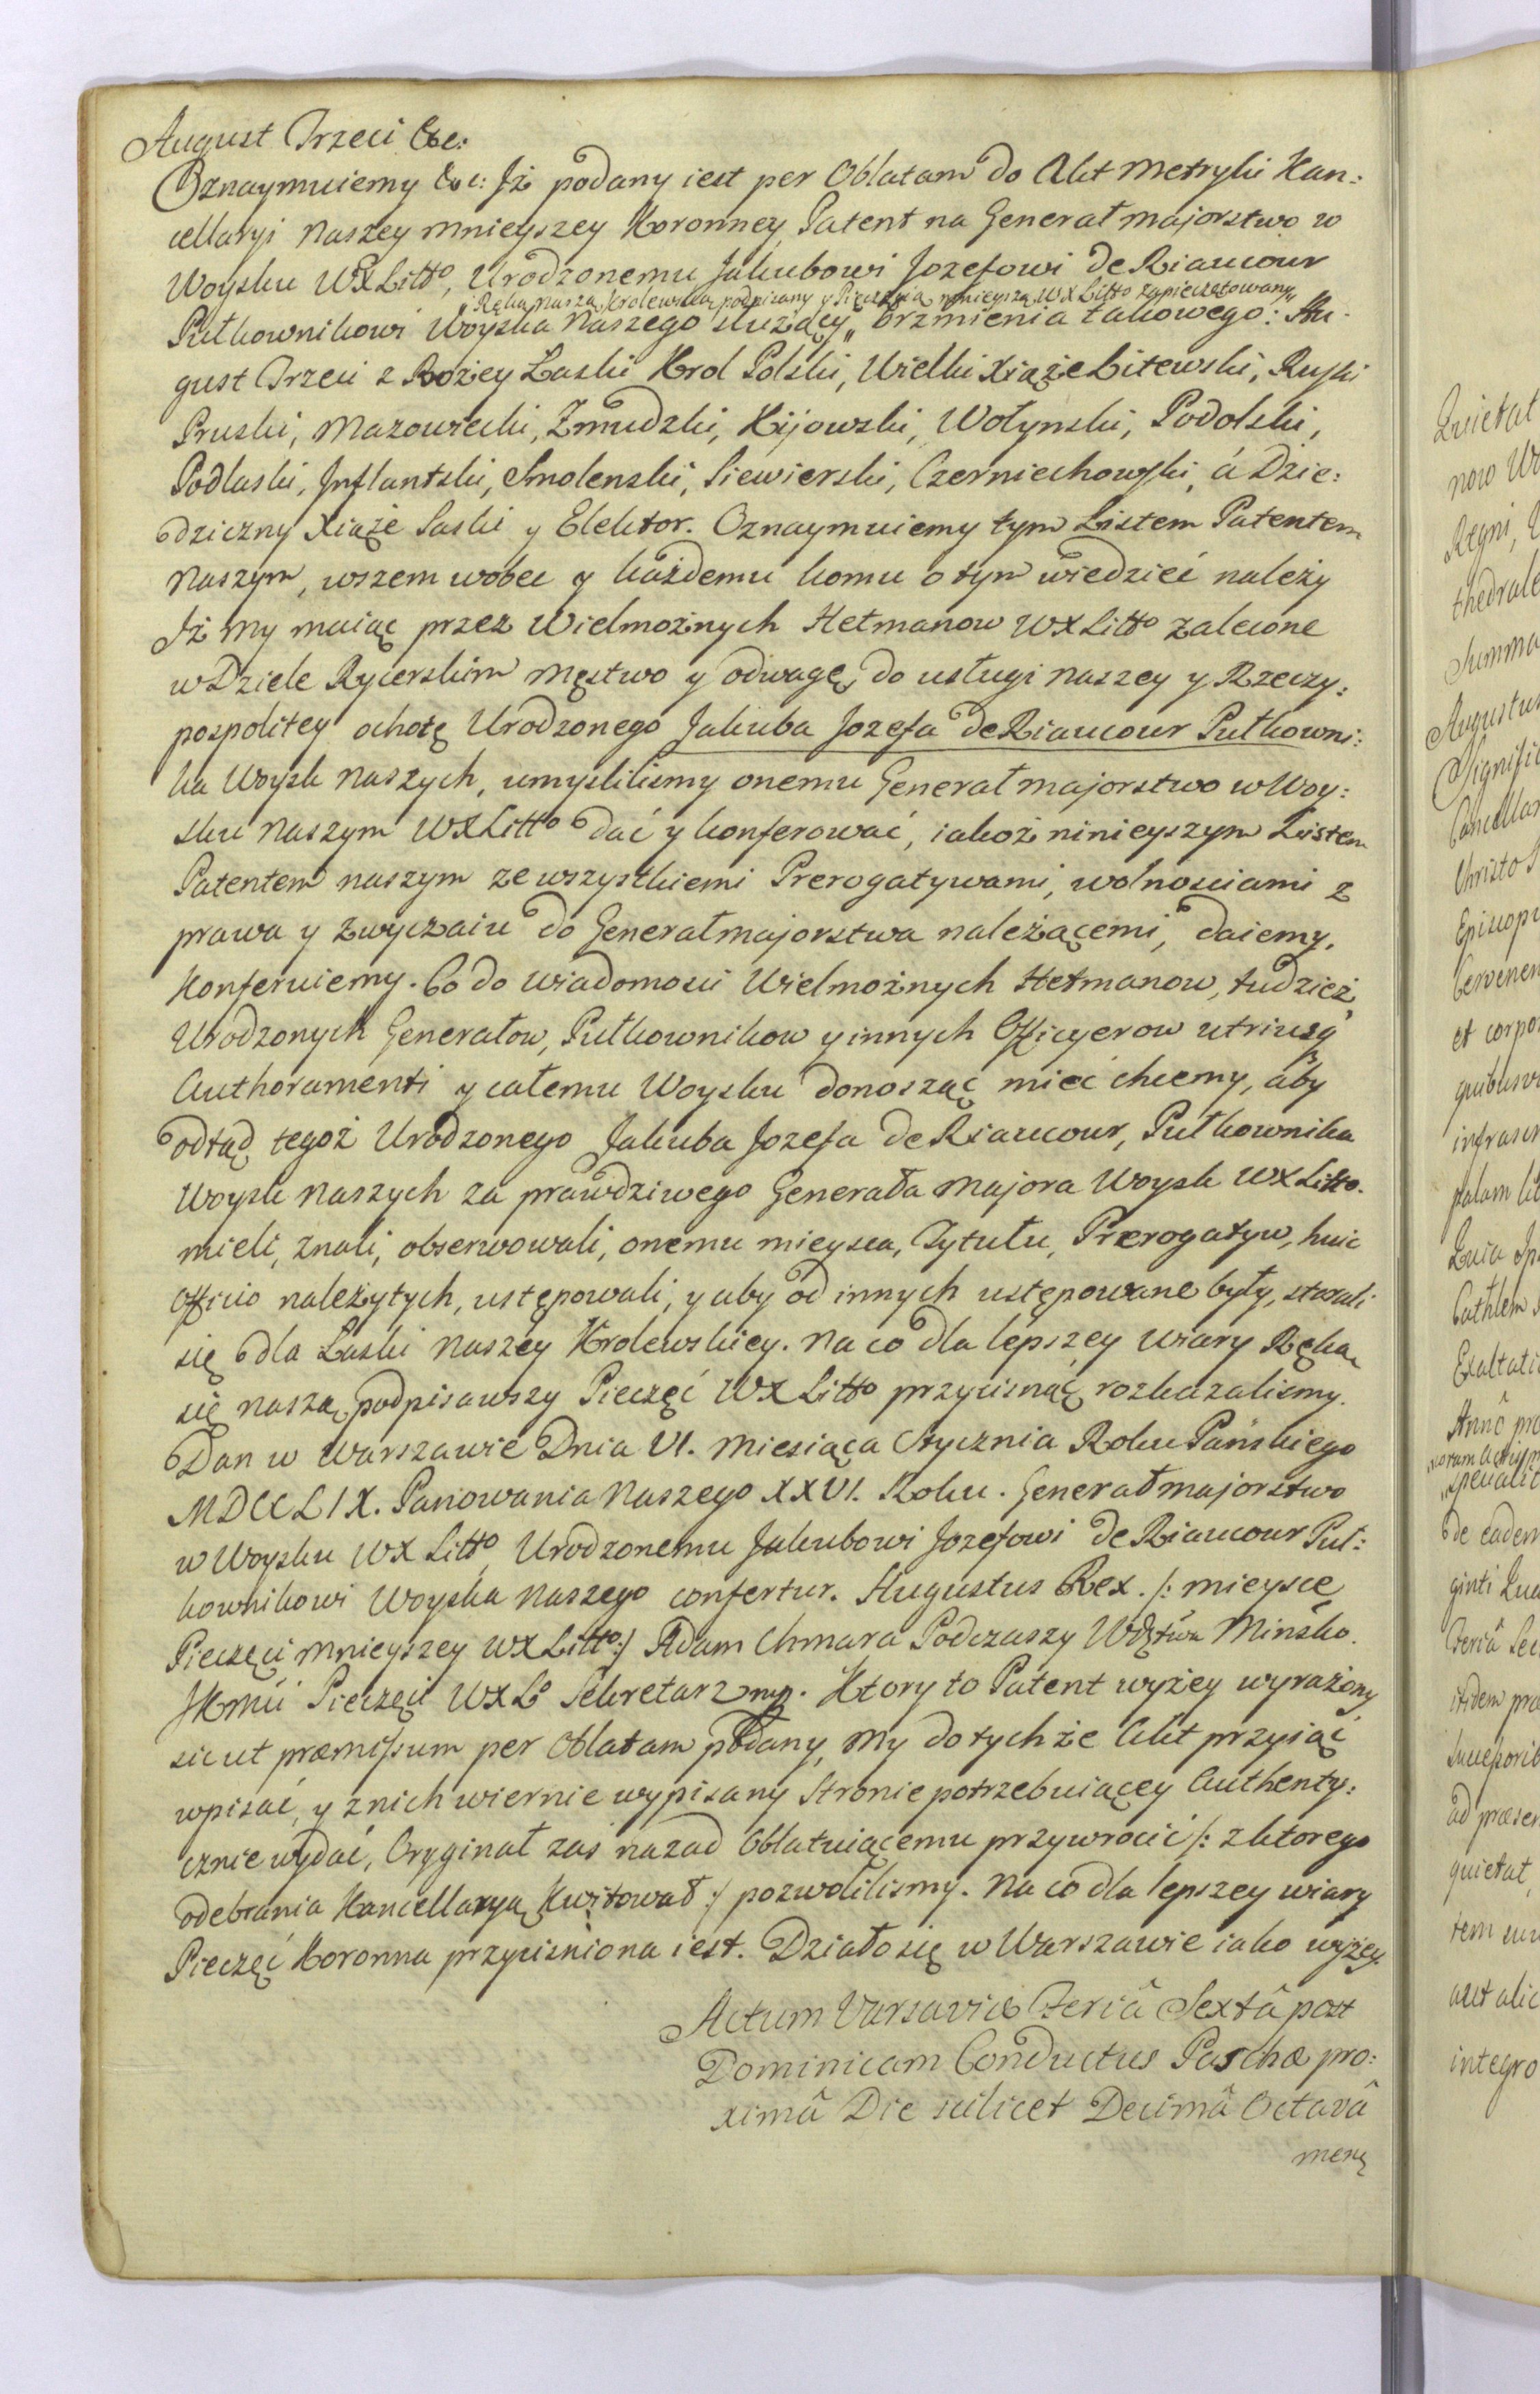 August Trzeci &c:
Oznaymuiemy &c: Jż podany iest per Oblatam do Akt Metryki Kan:
cellaryi Naszey mnieyszey Koronney Patent na Generał majorstwo w
Woysku WXLitto, Urodzonemu Jakubowi Jozefowi de Riaucour
„Ręką Naszą Krolewską podpisany y Pięczęcią mnieyszą WXLitto zapieczętowany„
Pułkownikowi Woyska Naszego służący„ brzmienia takowego: Au-
gust Trzeci z Bożey Łaski Krol Polski, Wielki Xiąże Litewski, Ruski
Pruski, Mazowiecki, Zmudzki, Kijowski, Wołynski, Podolski,
Podlaski, Inflantski, Smolenski, Siewierski, Czerniechowski, á Dzie:
dziczny Xiąże Saski y Elektor. Oznaymuiemy tym Listem Patentem
Naszym, wszem wobec y każdemu komu o tym wiedzieć należy
Jż My maiąc przez Wielmożnych Hetmanow WXLitto zalecone
w Dziele Rycerskim męstwo y odwagę, do usługi naszey y Rzeczy:
pospolitey ochotę Urodzonego Jakuba Jozefa de Riaucour Pułkowni:
ka Woysk Naszych, umysliliśmy onemu Generał majorstwo w Woy:
sku Naszym WXLitto dać y konferować, iakoż ninieyszym Listem
Patentem naszym ze wszystkiemi Prerogatywami, wolnosciami z
prawa y zwyczaiu do Generałmajorstwa należącemi, daiemy,
Konferuiemy. Co do wiadomosci Wielmożnych Hetmanow, tudzież
Urodzonych Generałow, Pułkownikow y innych Officyerow utriusq
Authoramenti y całemu Woysku donosząc mieć chcemy, áby
odtąd tegoż Urodzonego Jakuba Jozefa de Riaucour, Pułkownika
Woysk Naszych za prawdziwego Generała Majora Woysk WXLitto.
mieli, znali, obserwowali, onemu mieysca, Tytułu, Prerogatyw, huic
Officio należytych, ustępowali, y aby od innych ustępowane były, starali
się dla Łaski Naszey Krolewskiey. Na co dla lepszey wiary Ręką
się naszą podpisawszy Pieczęć WXLitto przycisnąć rozkazaliśmy.
Dan w Warszawie Dnia VI. Miesiąca Stycznia Roku Pańskiego
MDCCLIX. Panowania Naszego XXVI. Roku. Generał majorstwo
w Woysku WX Litto Urodzonemu Jakubowi Jozefowi de Riaucour Puł:
kownikowi Woyska Naszego confertur. Augustus Rex. /: mieysce
Pieczęci mnieyszey WXLitto:/ Adam Chmara Podczaszy Wdztwa Minsko.
JKMci Pieczęci WXLo Sekretarz mp. Ktory to Patent wyżey wyrażony
sicut præmissum per Oblatam podany, My do tychże Akt przyiąć
wpisać, y z nich wiernie wypisany Stronie potrzebuiącey Authenty:
cznie wydać, Oryginał zaś nazad Oblatuiącemu przywrocić /: z ktorego
odebrania Kancellaryą Kwitował :/ pozwoliliśmy. Na co dla lepszey wiary
Pieczęć Koronna przycisniona iest. Działo się w Warszawie iako wyżey.
Actum Varsaviæ Feriâ Sextâ post
Dominicam Conductus Paschæ pro:
ximâ Die scilicet Decimâ Octavâ
Quietat
now
Regni,
thedrale
Summa
Augustus
Cancellar
Christo
et corpo
de eadem
ad præsen
quietat,
aut alic
integro